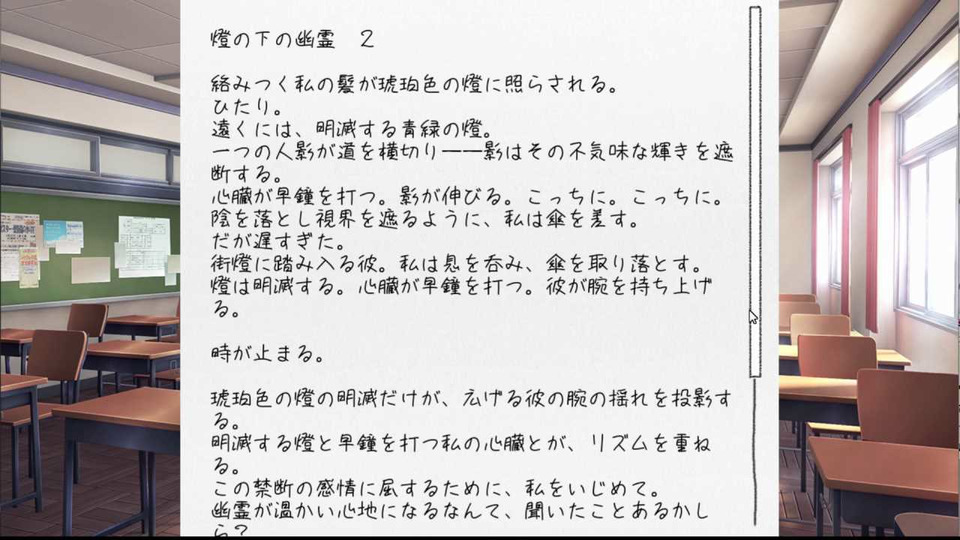 燈の下の幽霊　2
絡みつく私の髪が琥珀色の燈に照らされる。
ひたり。
遠くには、明滅する青緑の燈。
一つの人影が道を横切り――影はその不気味な輝きを遮
断する。
心臓が早鐘を打つ。影が伸びる。こっちに。こっちに。
陰を落とし視界を遮るように、私は傘を差す。
だが遅すぎた。
街燈に踏み入る彼。私は息を呑み、傘を取り落とす。
燈は明滅する。心臓が早鐘を打つ。彼が腕を持ち上げ
る。
時が止まる。
琥珀色の燈の明滅だけが、広げる彼の腕の揺れを投影す
る。
明滅する燈と早鐘を打つ私の心臓とが、リズムを重ね
る。
この禁断の感情に屈するために、私をいじめて。
幽霊が温かい心地になるなんて、聞いたことあるかし
ら？